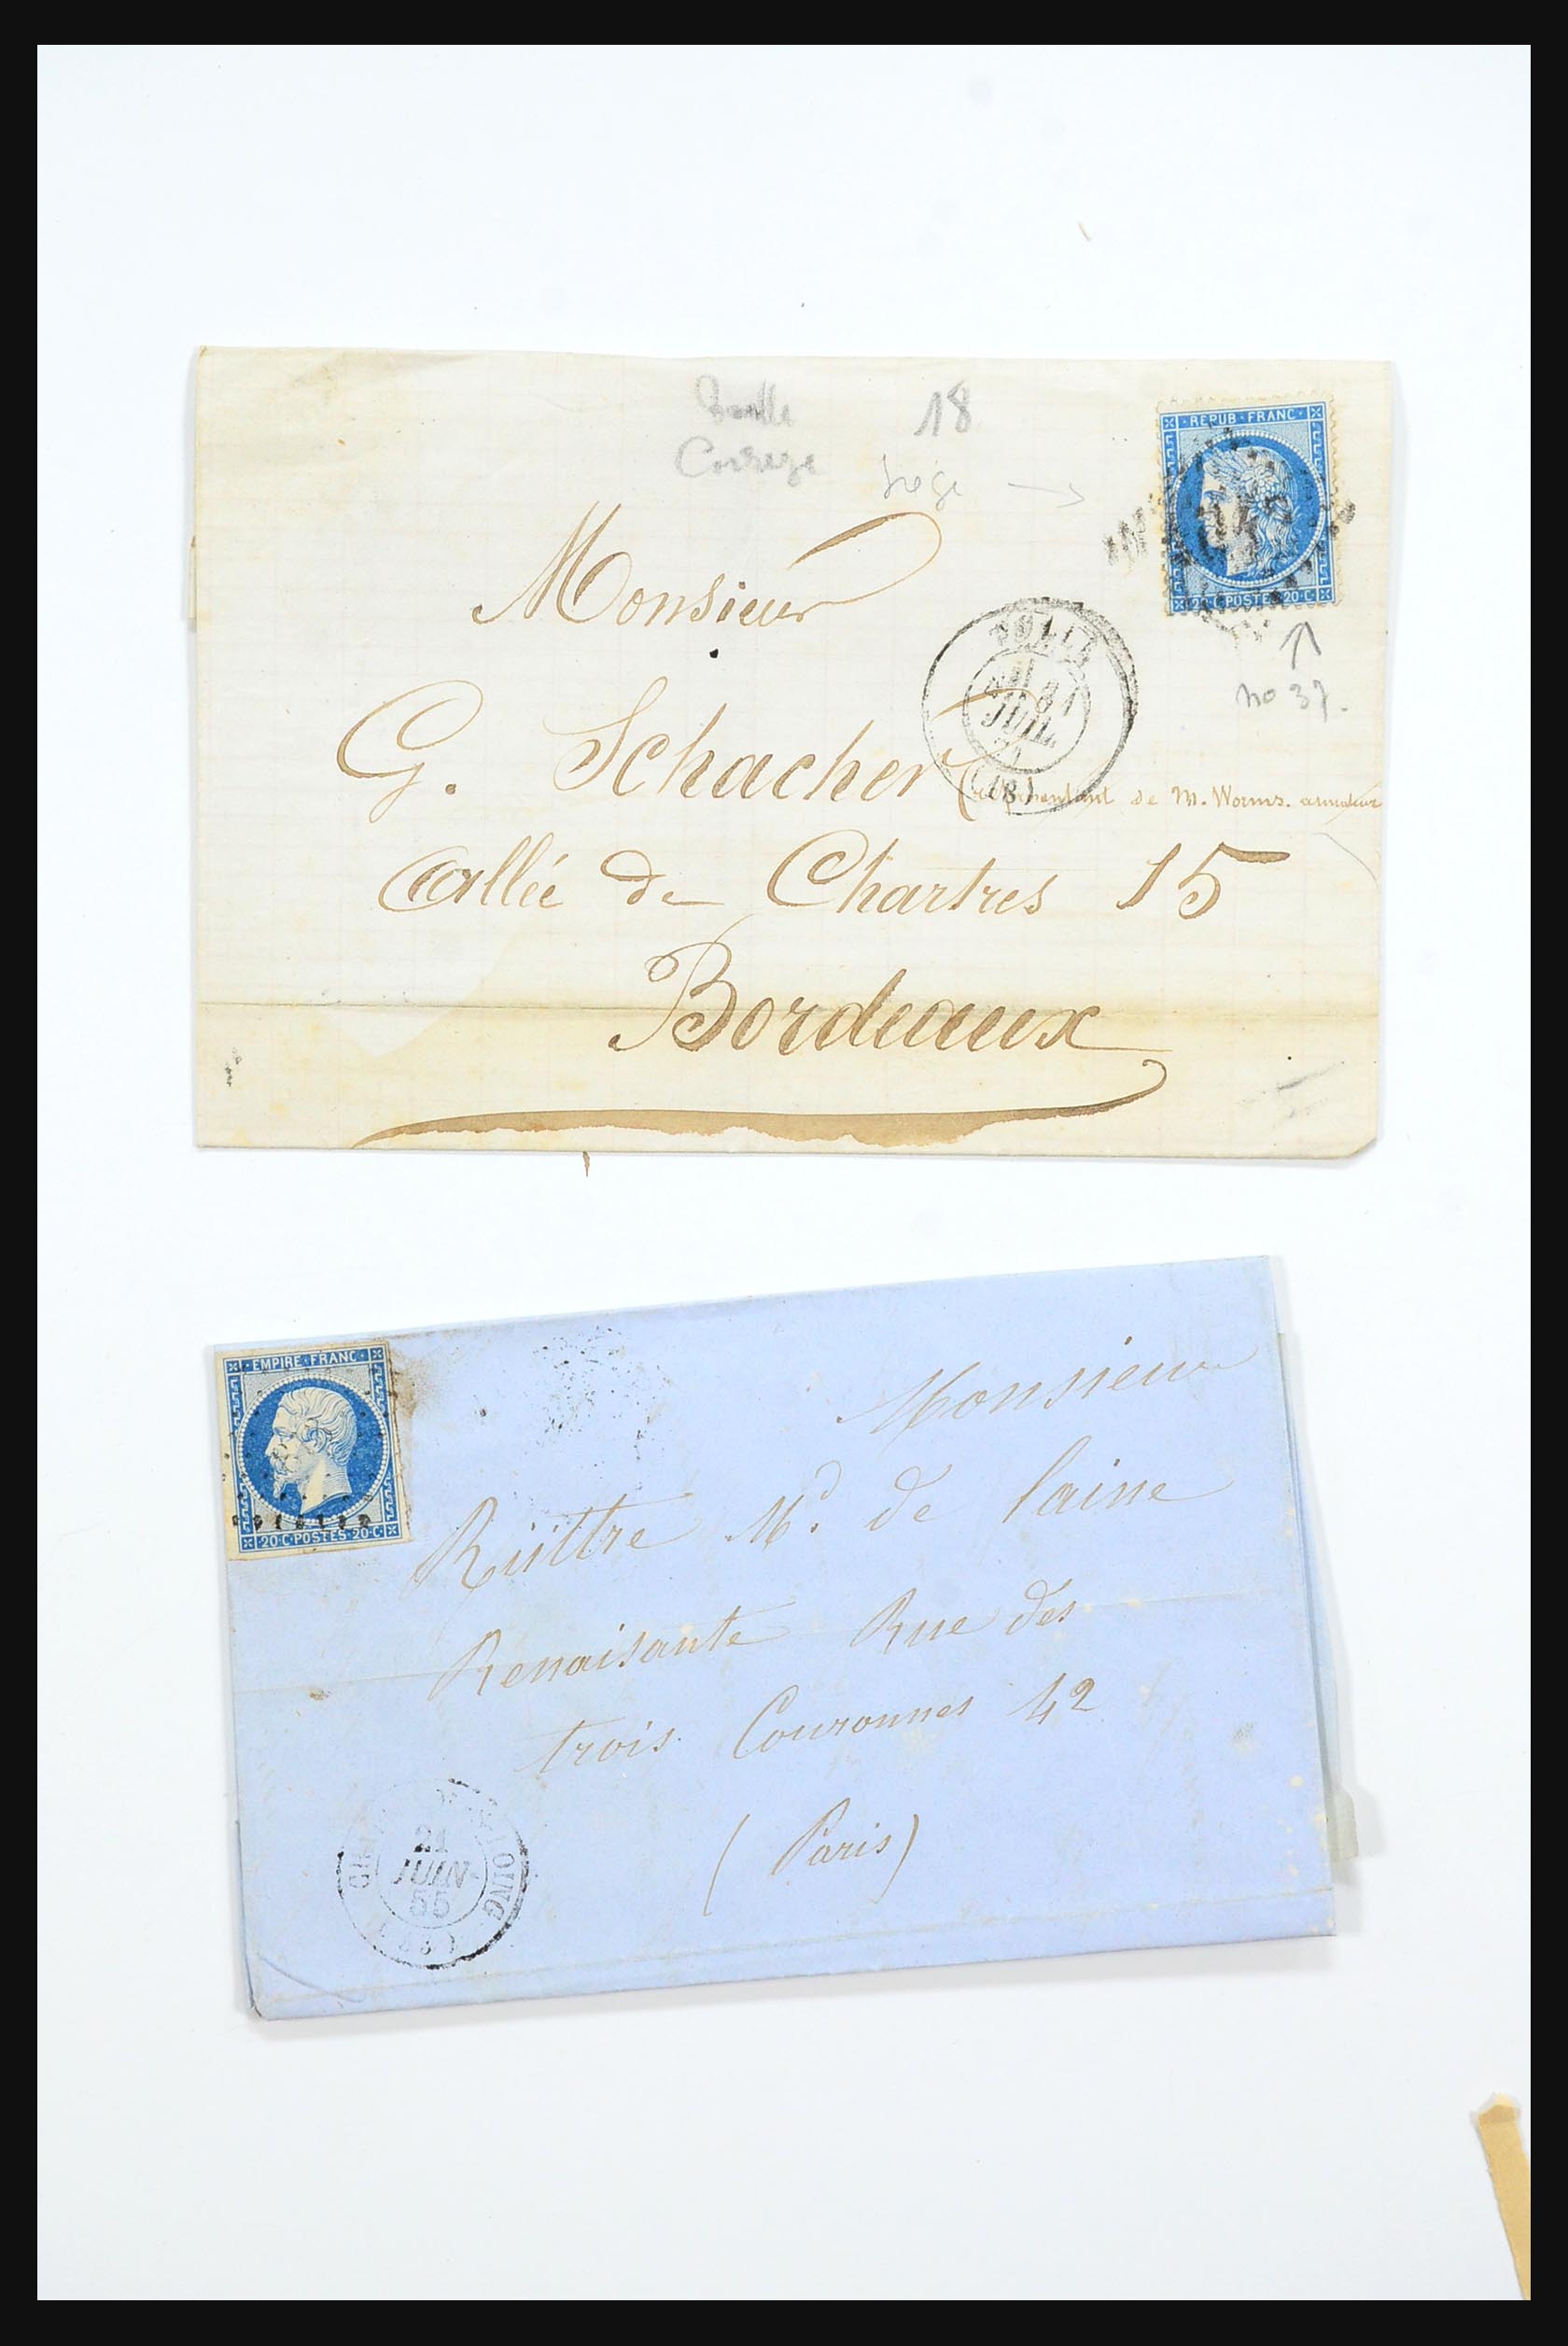 18
Correze
REPUB · FRANC ·
20 · C · POSTES · 20 · C ·
no 37.
Monsieur
TULLE
31
JUIL.
(18)
G. Schacher (représentant de M. Worms. armateur
allée de Chartres 15
Bordeaux
· EMPIRE · FRANC ·
· 20 · C · POSTES · 20 · C ·
Monsieur
Rüttre Md. de laine
Renaisante Rue des
trois Couronnes 42
(Paris)
21
JUIN
55